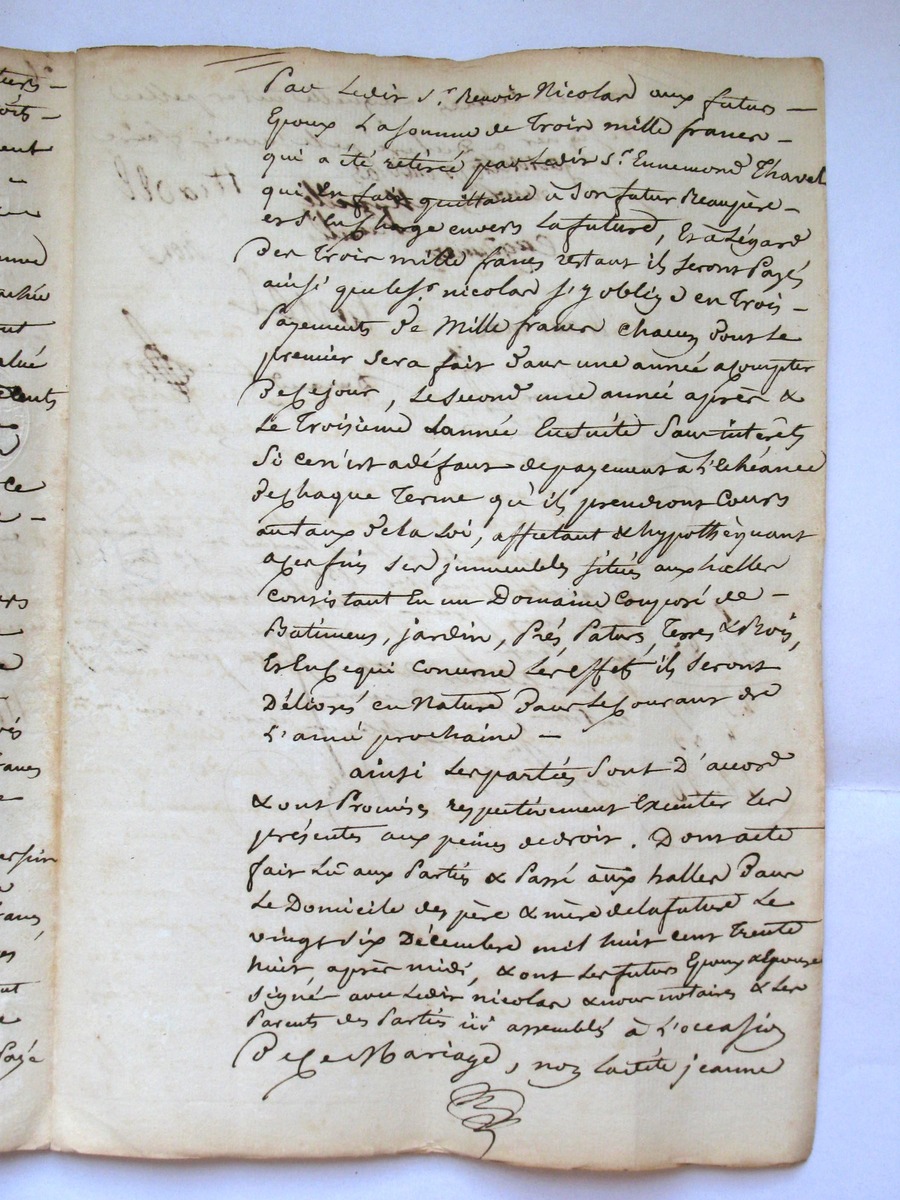 Par Ledit Sr. Benoit Nicolas aux futurs —
Epoux La somme de Trois mille francs —
qui a été retirée par Ledit Sr. Ennemond Thavel
qui En fait quittance à Son futur Beaupère —
et S'En Charge envers La future, Et à L'égard
Des Trois mille francs restant ils Seront Payés
ainsi que le Sr. nicolas S'y oblige en Trois —
Payements De Mille francs chacun dont Le
premier Sera fait Dans une année a Compter
De Ce jour, Le Second une année après &
Le Troisième L'année Ensuite Sans intérêts
Si ce n'est a défaut de payement à L'Echéance
De Chaque Terme qu'ils prendront Cours
au taux De la Loi, affectant & hypothèquant
a Ces fins Ses immeubles Situés aux halles
Consistant En un Domaine Composé de —
Batimens, jardin, Prés Paturs, Terres & Bois,
Et En Ce qui Concerne Les effets ils Seront
Délivrés en Nature Dans Le Courant de
L'année prochaine —
ainsi Les parties Sont D'accord
& ont Promises respectivement Executer Les
présentes aux peines de droit. Dont acte
fait Lu aux Parties & Passé aux halles Dans
Le Domicile des père & mère de la future Le
vingt Six Décembre mil huit cent Trente
huit après midi, & ont Les futurs Epoux & Epouse
Signé avec Ledit nicolas & nous notaires & Les
Parents des Parties ici assemblés à L'occasion
De Ce Mariage, non Ladite jeanne